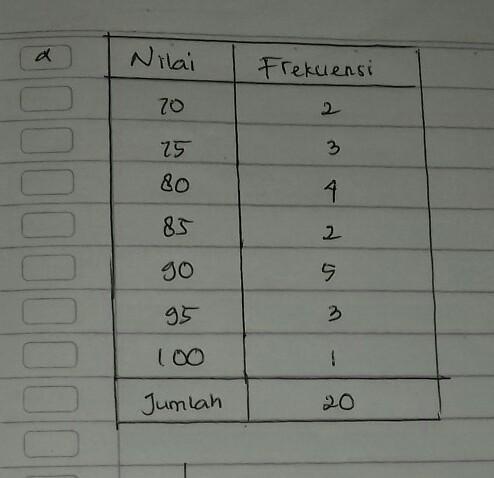 a Nilai Frekuensi
70 2
75 3
80 4
85 2
90 5
95 3
100 1
Jumlah 20